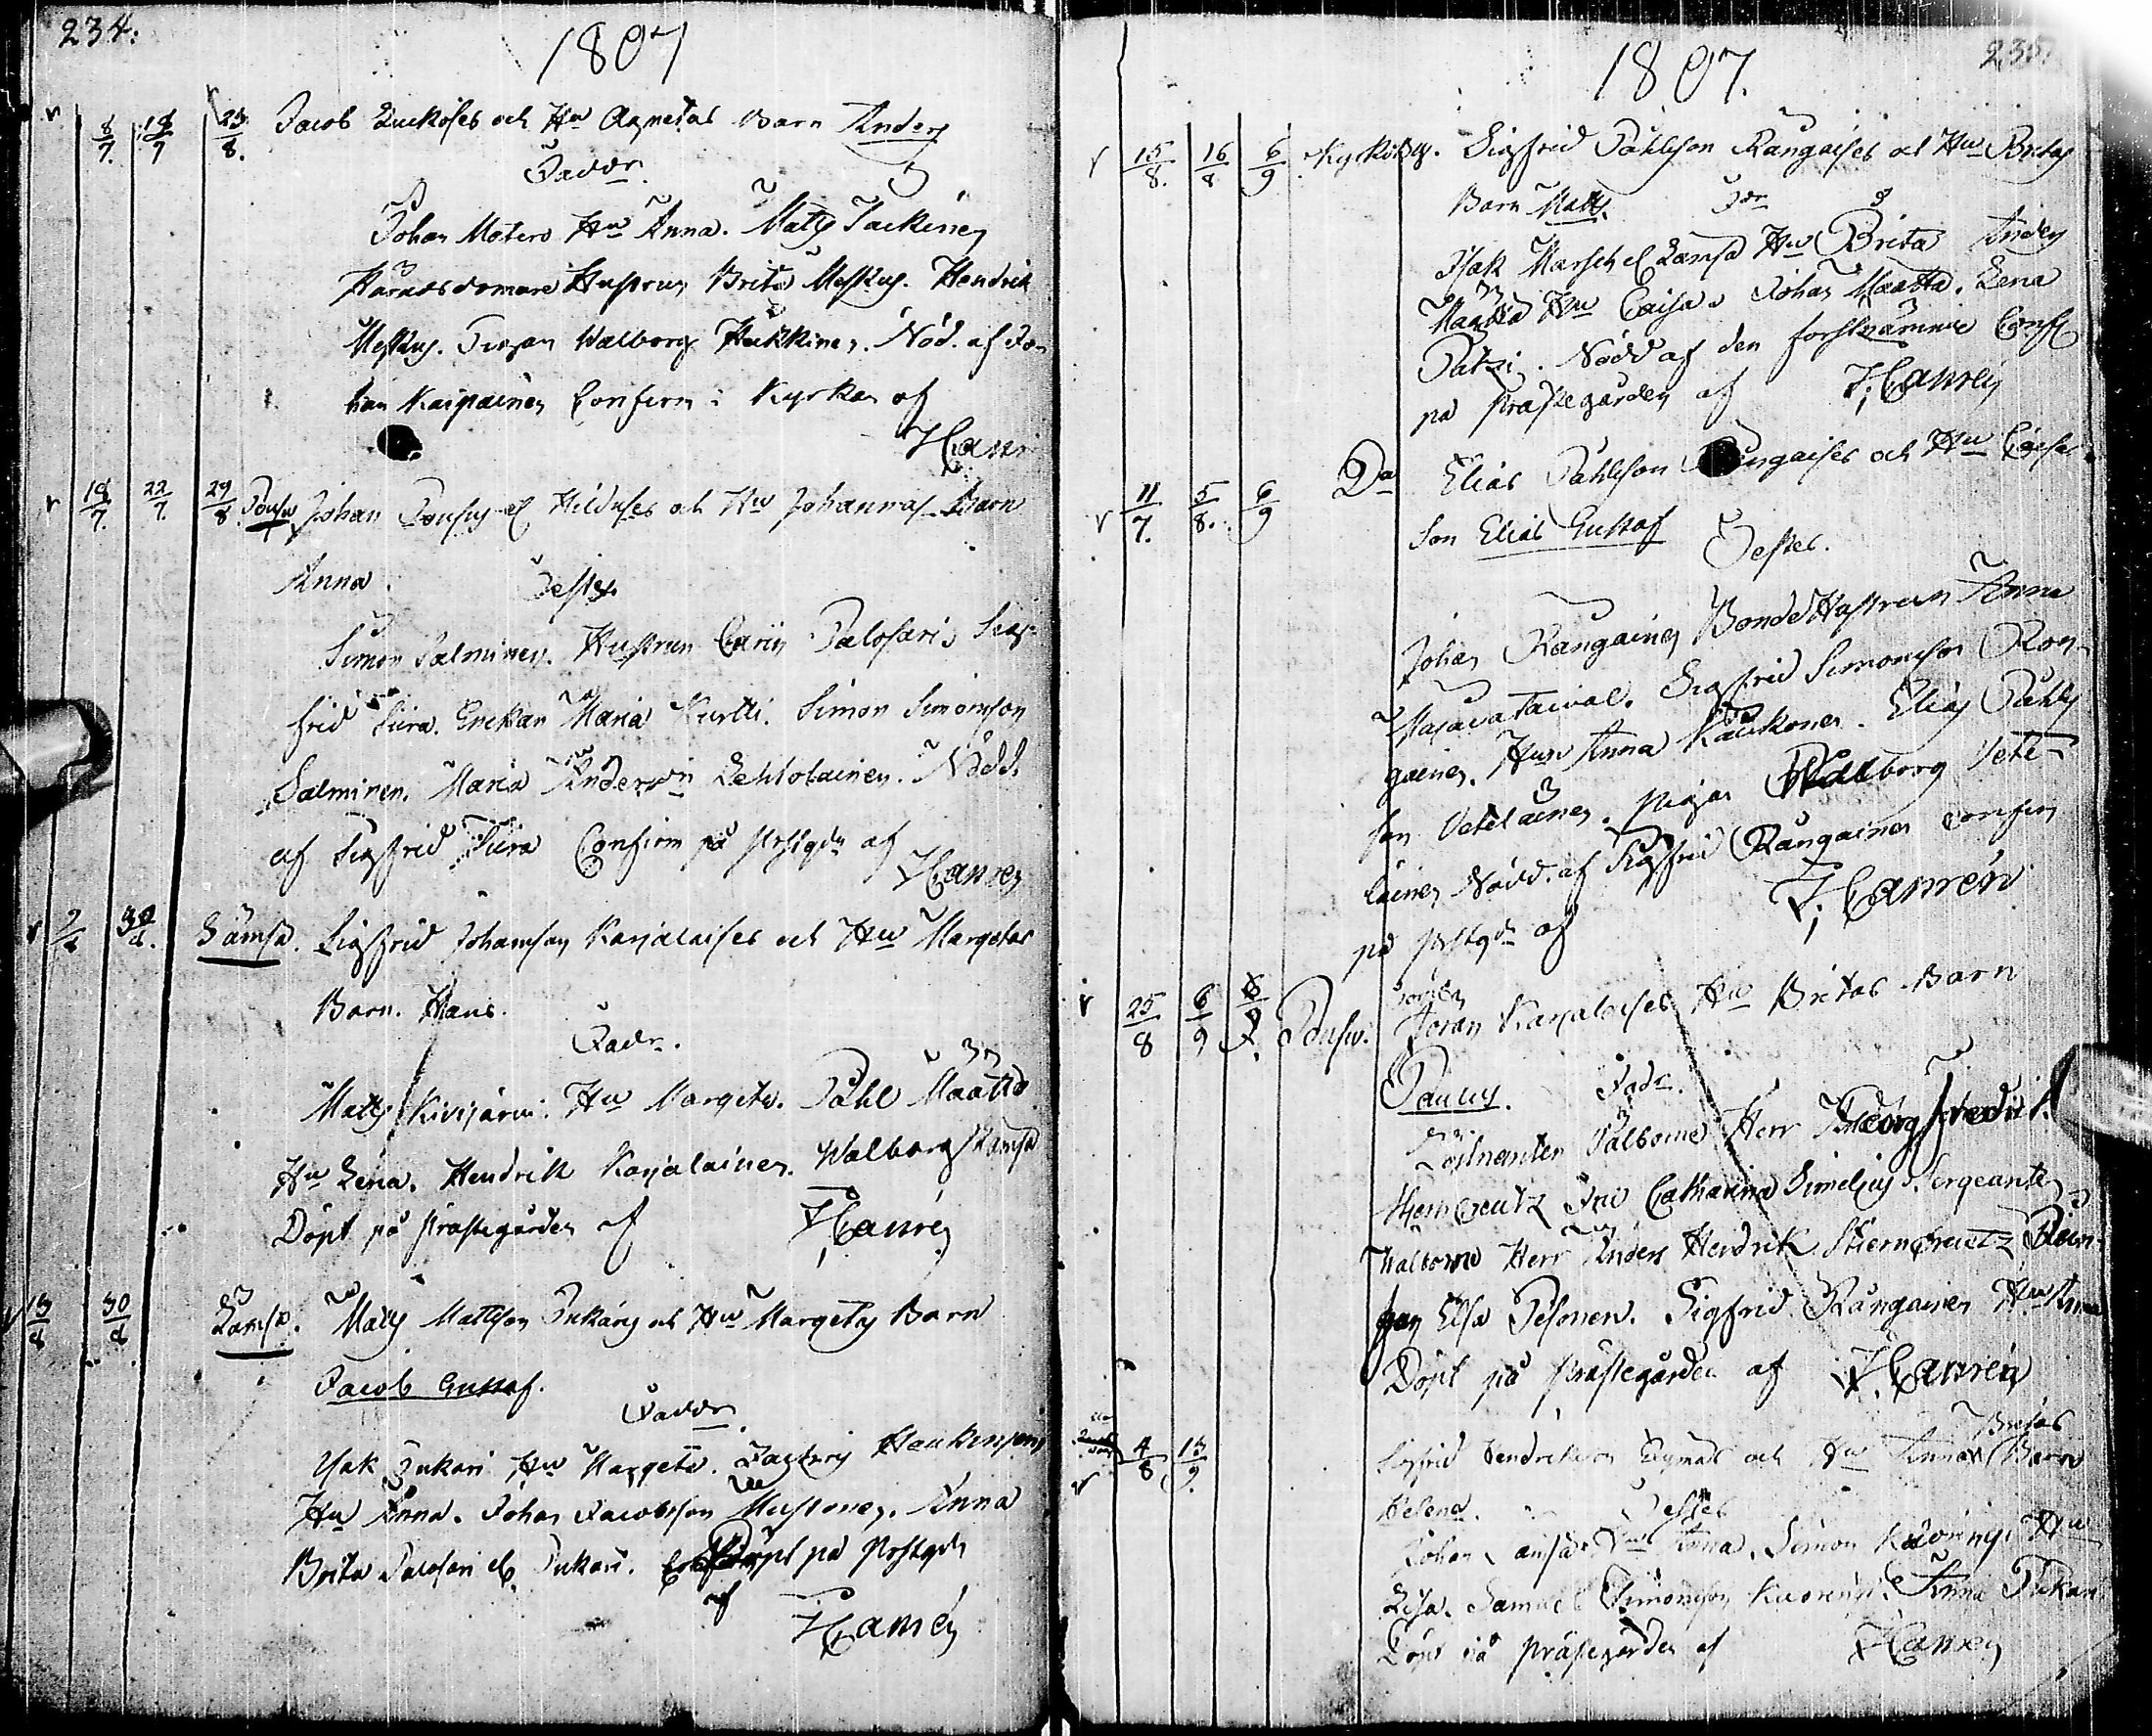 234.
1807
8/7. 18/7 23/8. Jacob Kuckoses och Hu Agnetas Barn Anders
Faddr.
Johan Moters Hu Anna. Matts Jackinen
Häradsdomare Hustrun Brita Moskus. Hendrik
Moskus. Pigan Walborg Hukkinen. Nöd. af Jo-
han Kaipainen Confirm i Kyrkan af
H Canr
18/7. 22/7. 29/8 Johan och Hu Johannas Barn
Anna. Testes
Simon Salminen. Hustrun Carin Palosari. Sig-
frid Siira. Enckan Maria Kurtti. Simon Simonson
Salminen. Maria Lehtolainen. Nödd.
af Sigfrid Siira Confirm på Prstgdn af
H Canren
7/8 30/8. Lämsä. Sigfrid Johanson Karjalaises och Hu Margetas
Barn. Hans.
Fadr.
Matts Kivijärvi. Hu Margeta. Påhl Määttä
Hu Lena. Hendrik Karjalainen. Walborg Lämsä
Döpt på Prästegården af H Canrén
13/8 30/8 Lämsä. Matts Mattson Tukaris och Hu Margetas Barn
Jacob Gustaf.
Faddr
Isak Tukari Hu Margeta. Haukinen
Hu Anna. Johan Jacobsson Mustonen. Anna
Brita Palosari el. Tukari. Döpt på Prstgdn
af
H Canrén
235.
1807.
15/8. 16/8 6/9 Kyrkoby. Sigfrid Påhlson Rångaises och Hu Britas
Barn Matts. Fdr
Isak Marsch el Lämsä Hu Brita Anders
Määttä Hu Caisa. Johan Määttä. Lena
Patri. Nödd af den förstnämnde Conf
på Prästegården af H Canrén
11/7. 5/8. 6/9 Do Elias Påhlson Rångaises och Hu Caisas
Son Elias Gustaf Testes.
Johan Rångainen Bonde Hustrun Anna
Majavataival. Sigfrid Simonson Rån-
gainen. Hun Anna Kauckonen. Elias Påhls
son Vetelainen. Pigan Walborg Vete-
lainen Nödd. af Sigfrid Rångainen confirm
på Prstgdn af H Canrén
25/8 6/9 Pousu. Göran Karjalaises Hu Britas Barn
Paulus. Fadr.
Löjtnanten Välborne Herr Georg Fredrik
Stjerncreutz Fru Catharina Simelius Sergeanten
Wälborne Herr Anders Hendrik Stierncreutz
Elsa Pesonen. Sigfrid Rångainen Hu Anna
Döpt på Prästegården af H Canrén
Britas
4/8 13/9 Sigfrid Hendrikson och Hu Annas Barn
Helena. Testes
Johan Lämsä Hu Anna. Simon Kuorings Hu
Lisa. Samuel Simonson Kuorings. Anna Tukari
Döpt på Prästegården af H Canren